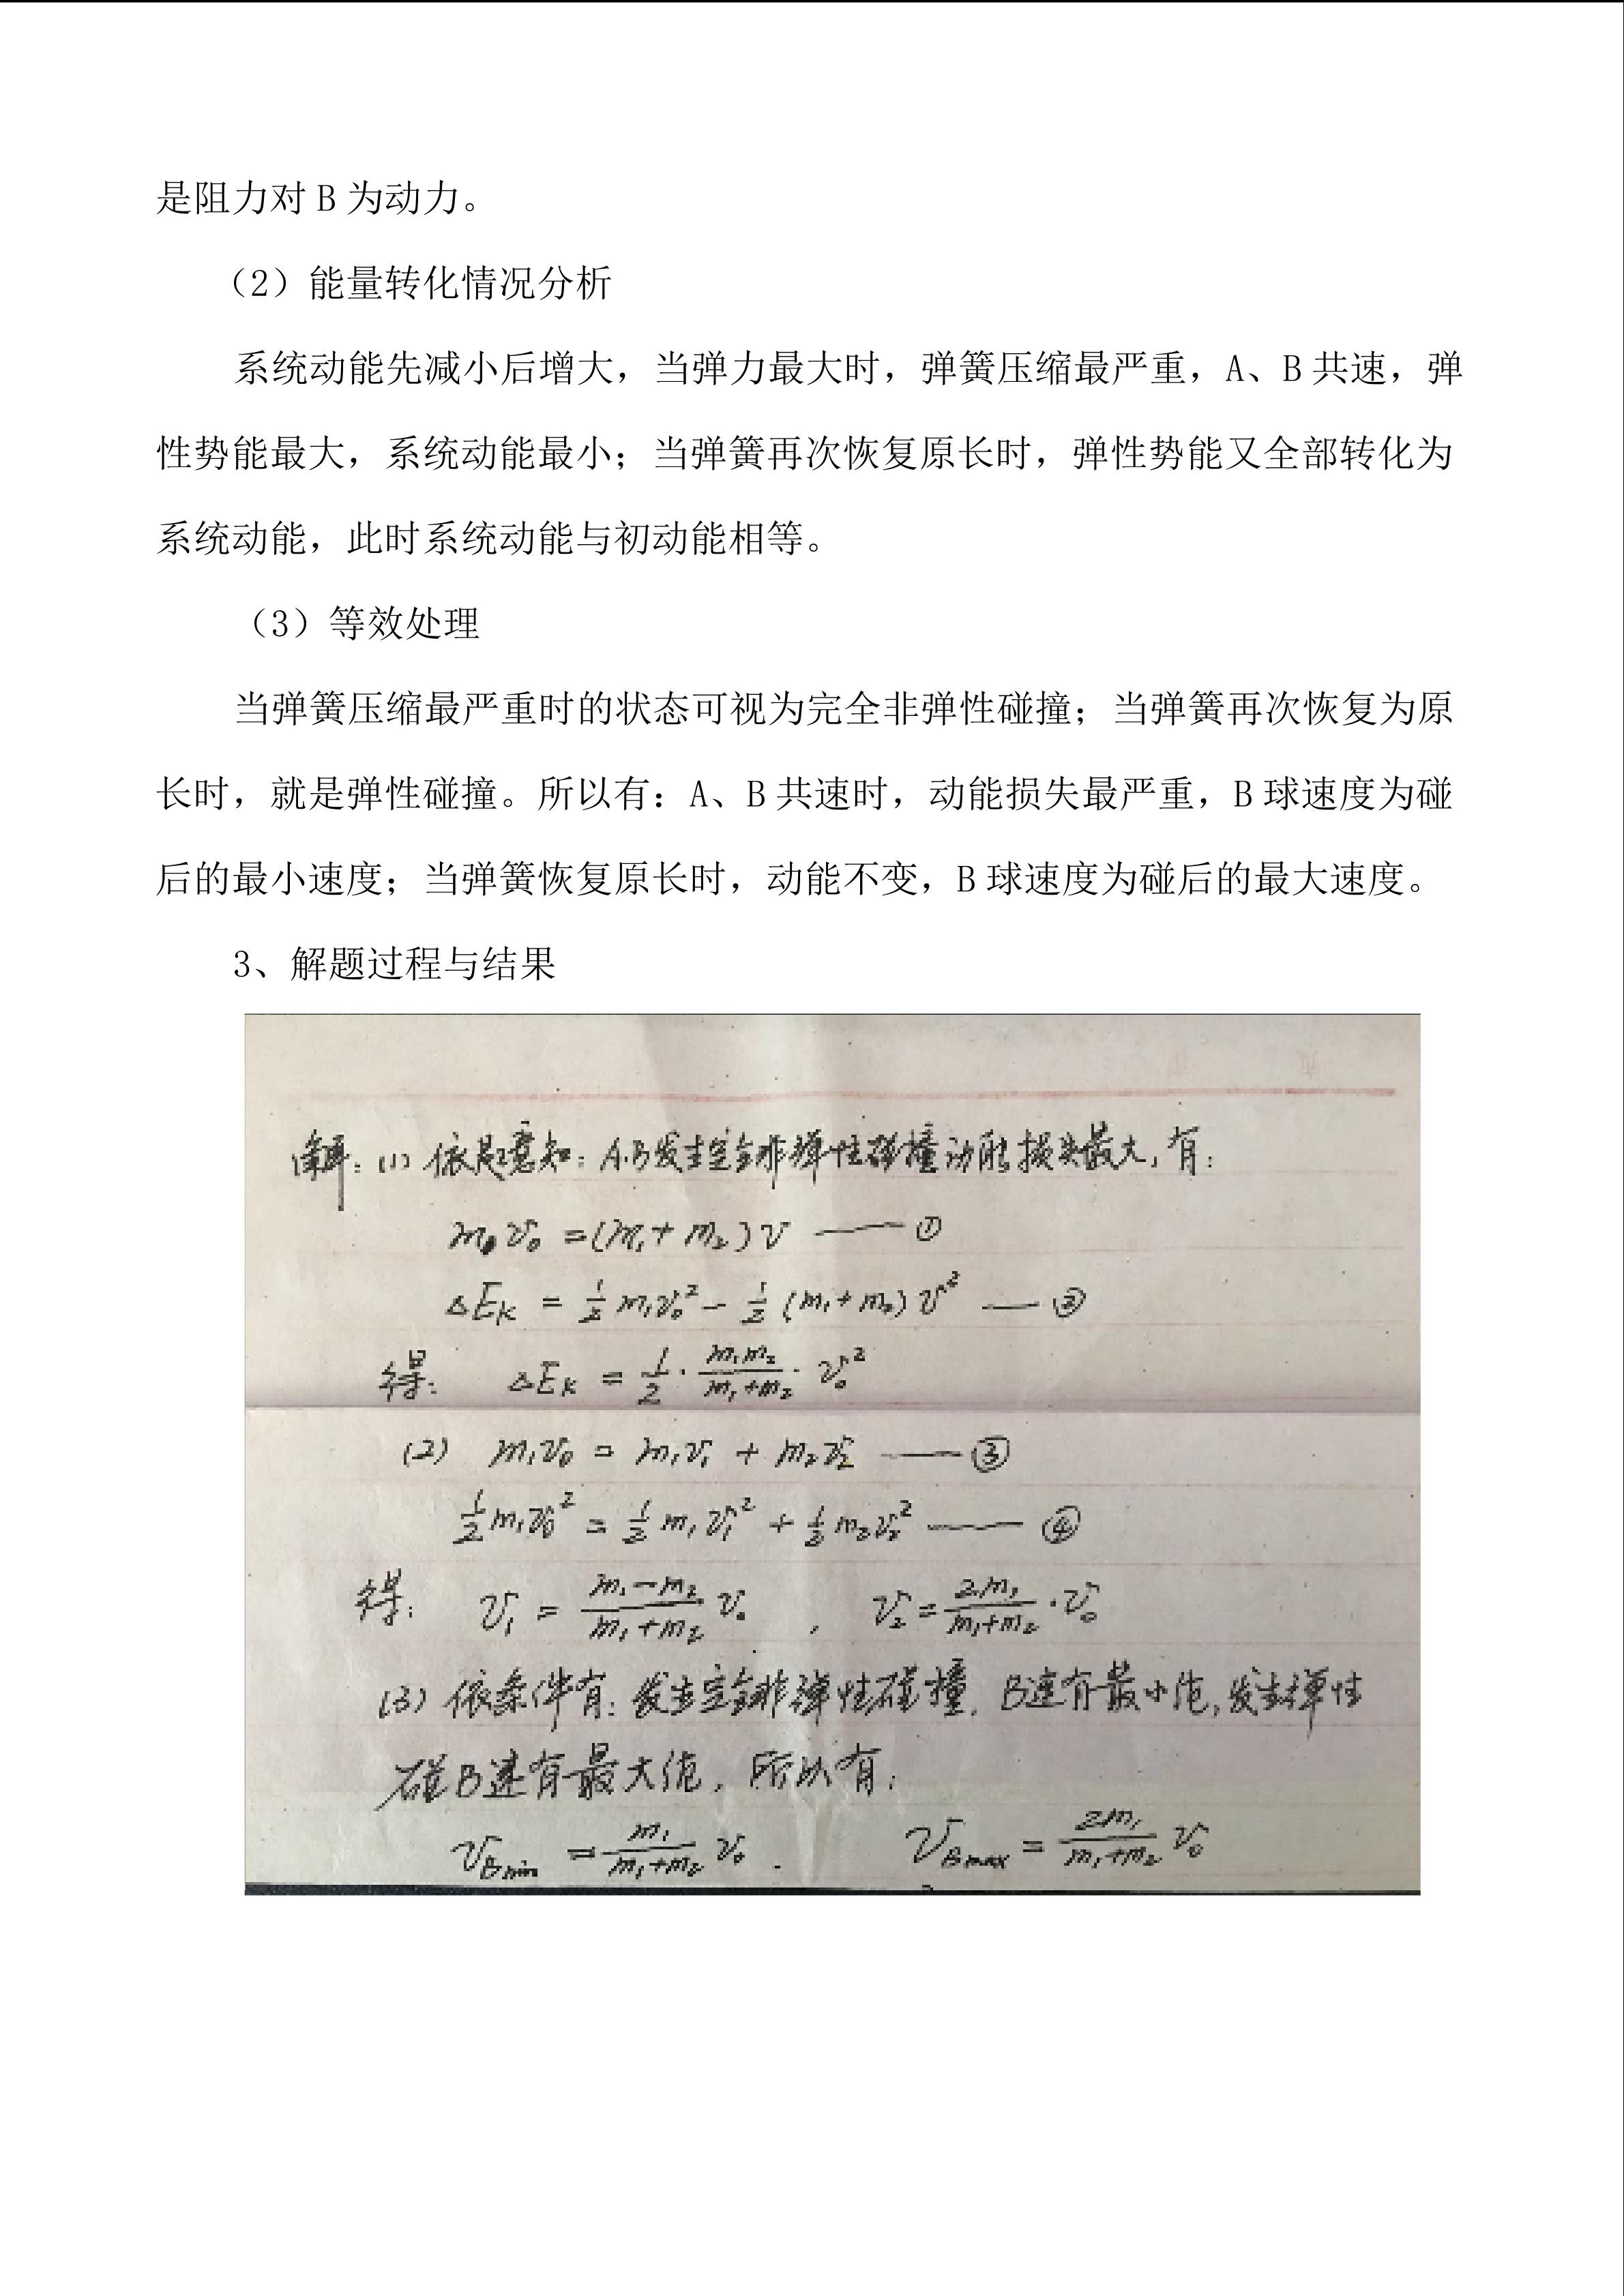 是阻力对 B 为动力。
（2）能量转化情况分析
系统动能先减小后增大，当弹力最大时，弹簧压缩最严重，A、B 共速，弹
性势能最大，系统动能最小；当弹簧再次恢复原长时，弹性势能又全部转化为
系统动能，此时系统动能与初动能相等。
（3）等效处理
当弹簧压缩最严重时的状态可视为完全非弹性碰撞；当弹簧再次恢复为原
长时，就是弹性碰撞。所以有：A、B 共速时，动能损失最严重，B 球速度为碰
后的最小速度；当弹簧恢复原长时，动能不变，B 球速度为碰后的最大速度。
3、解题过程与结果
解：(1) 依题意知：A.B发生完全非弹性碰撞动能损失最大，有：
m₁v₀ =(m₁+ m₂)v —— ①
△Eₖ = ½ m₁v₀² − ½ (m₁+m₂) v² — ②
得： △Eₖ = 1/2 · m₁m₂/(m₁+m₂) · v₀²
(2) m₁v₀ = m₁v₁ + m₂v₂ —— ③
½ m₁v₀² = ½ m₁v₁² + ½ m₂v₂² —— ④
得： v₁ = (m₁−m₂)/(m₁+m₂) v₀ ， v₂ = 2m₁/(m₁+m₂) · v₀
(3) 依条件有：发生完全非弹性碰撞，B速有最小值，发生弹性
碰B速有最大值，所以有：
v_Bmin = m₁/(m₁+m₂) v₀ . v_Bmax = 2m₁/(m₁+m₂) v₀